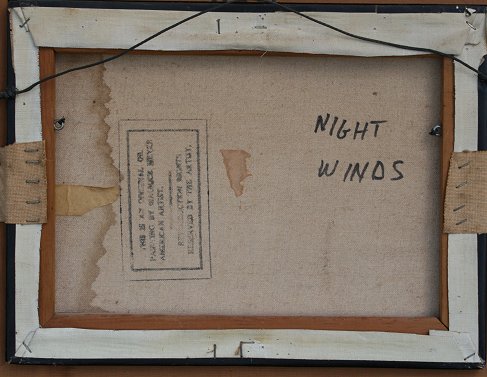 NIGHT
WINDS
THIS IS AN ORIGINAL OIL
PAINTING BY MEYER
AMERICAN ARTIST.
RIGHTS
RESERVED BY THE ARTIST.